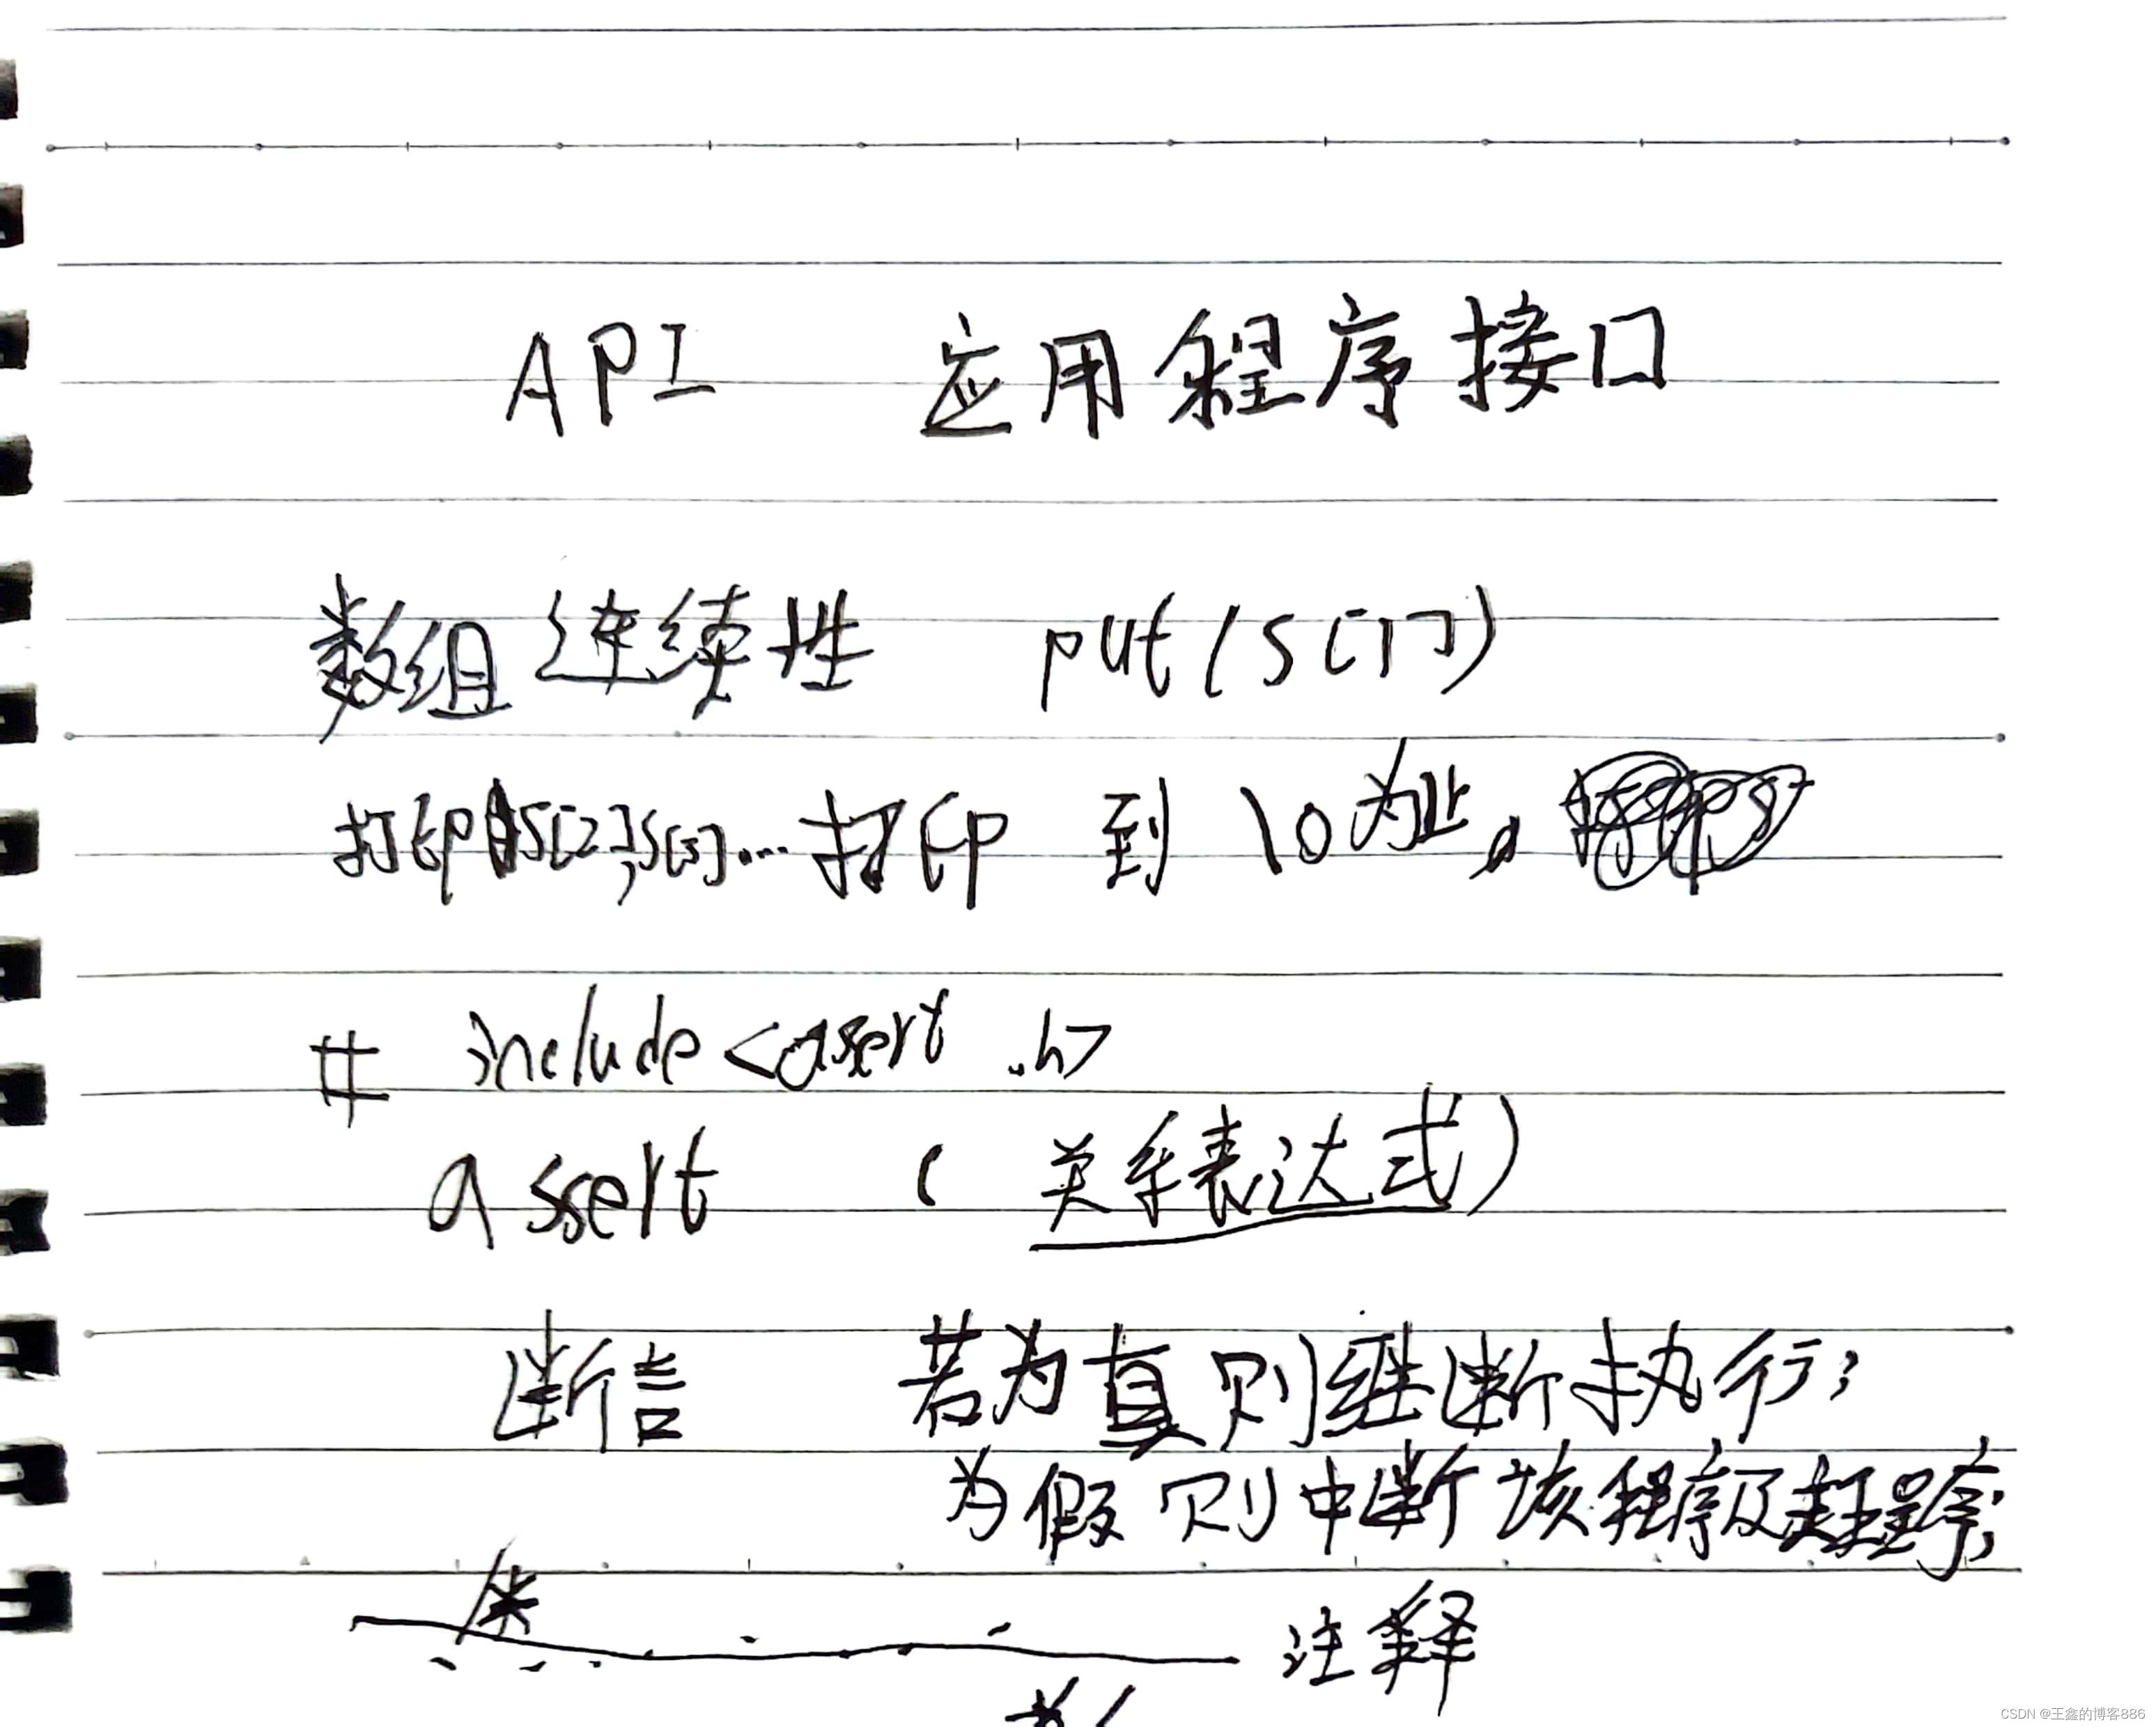 API 应用程序接口
数组连续性 put(s[1])
打印s[2],s[3]...打印到\0为止。
# include<assert.h>
assert (关系表达式)
断言 若为真则继断执行;
为假则中断该程序及
/* 注释
*/
CSDN @王鑫的博客886